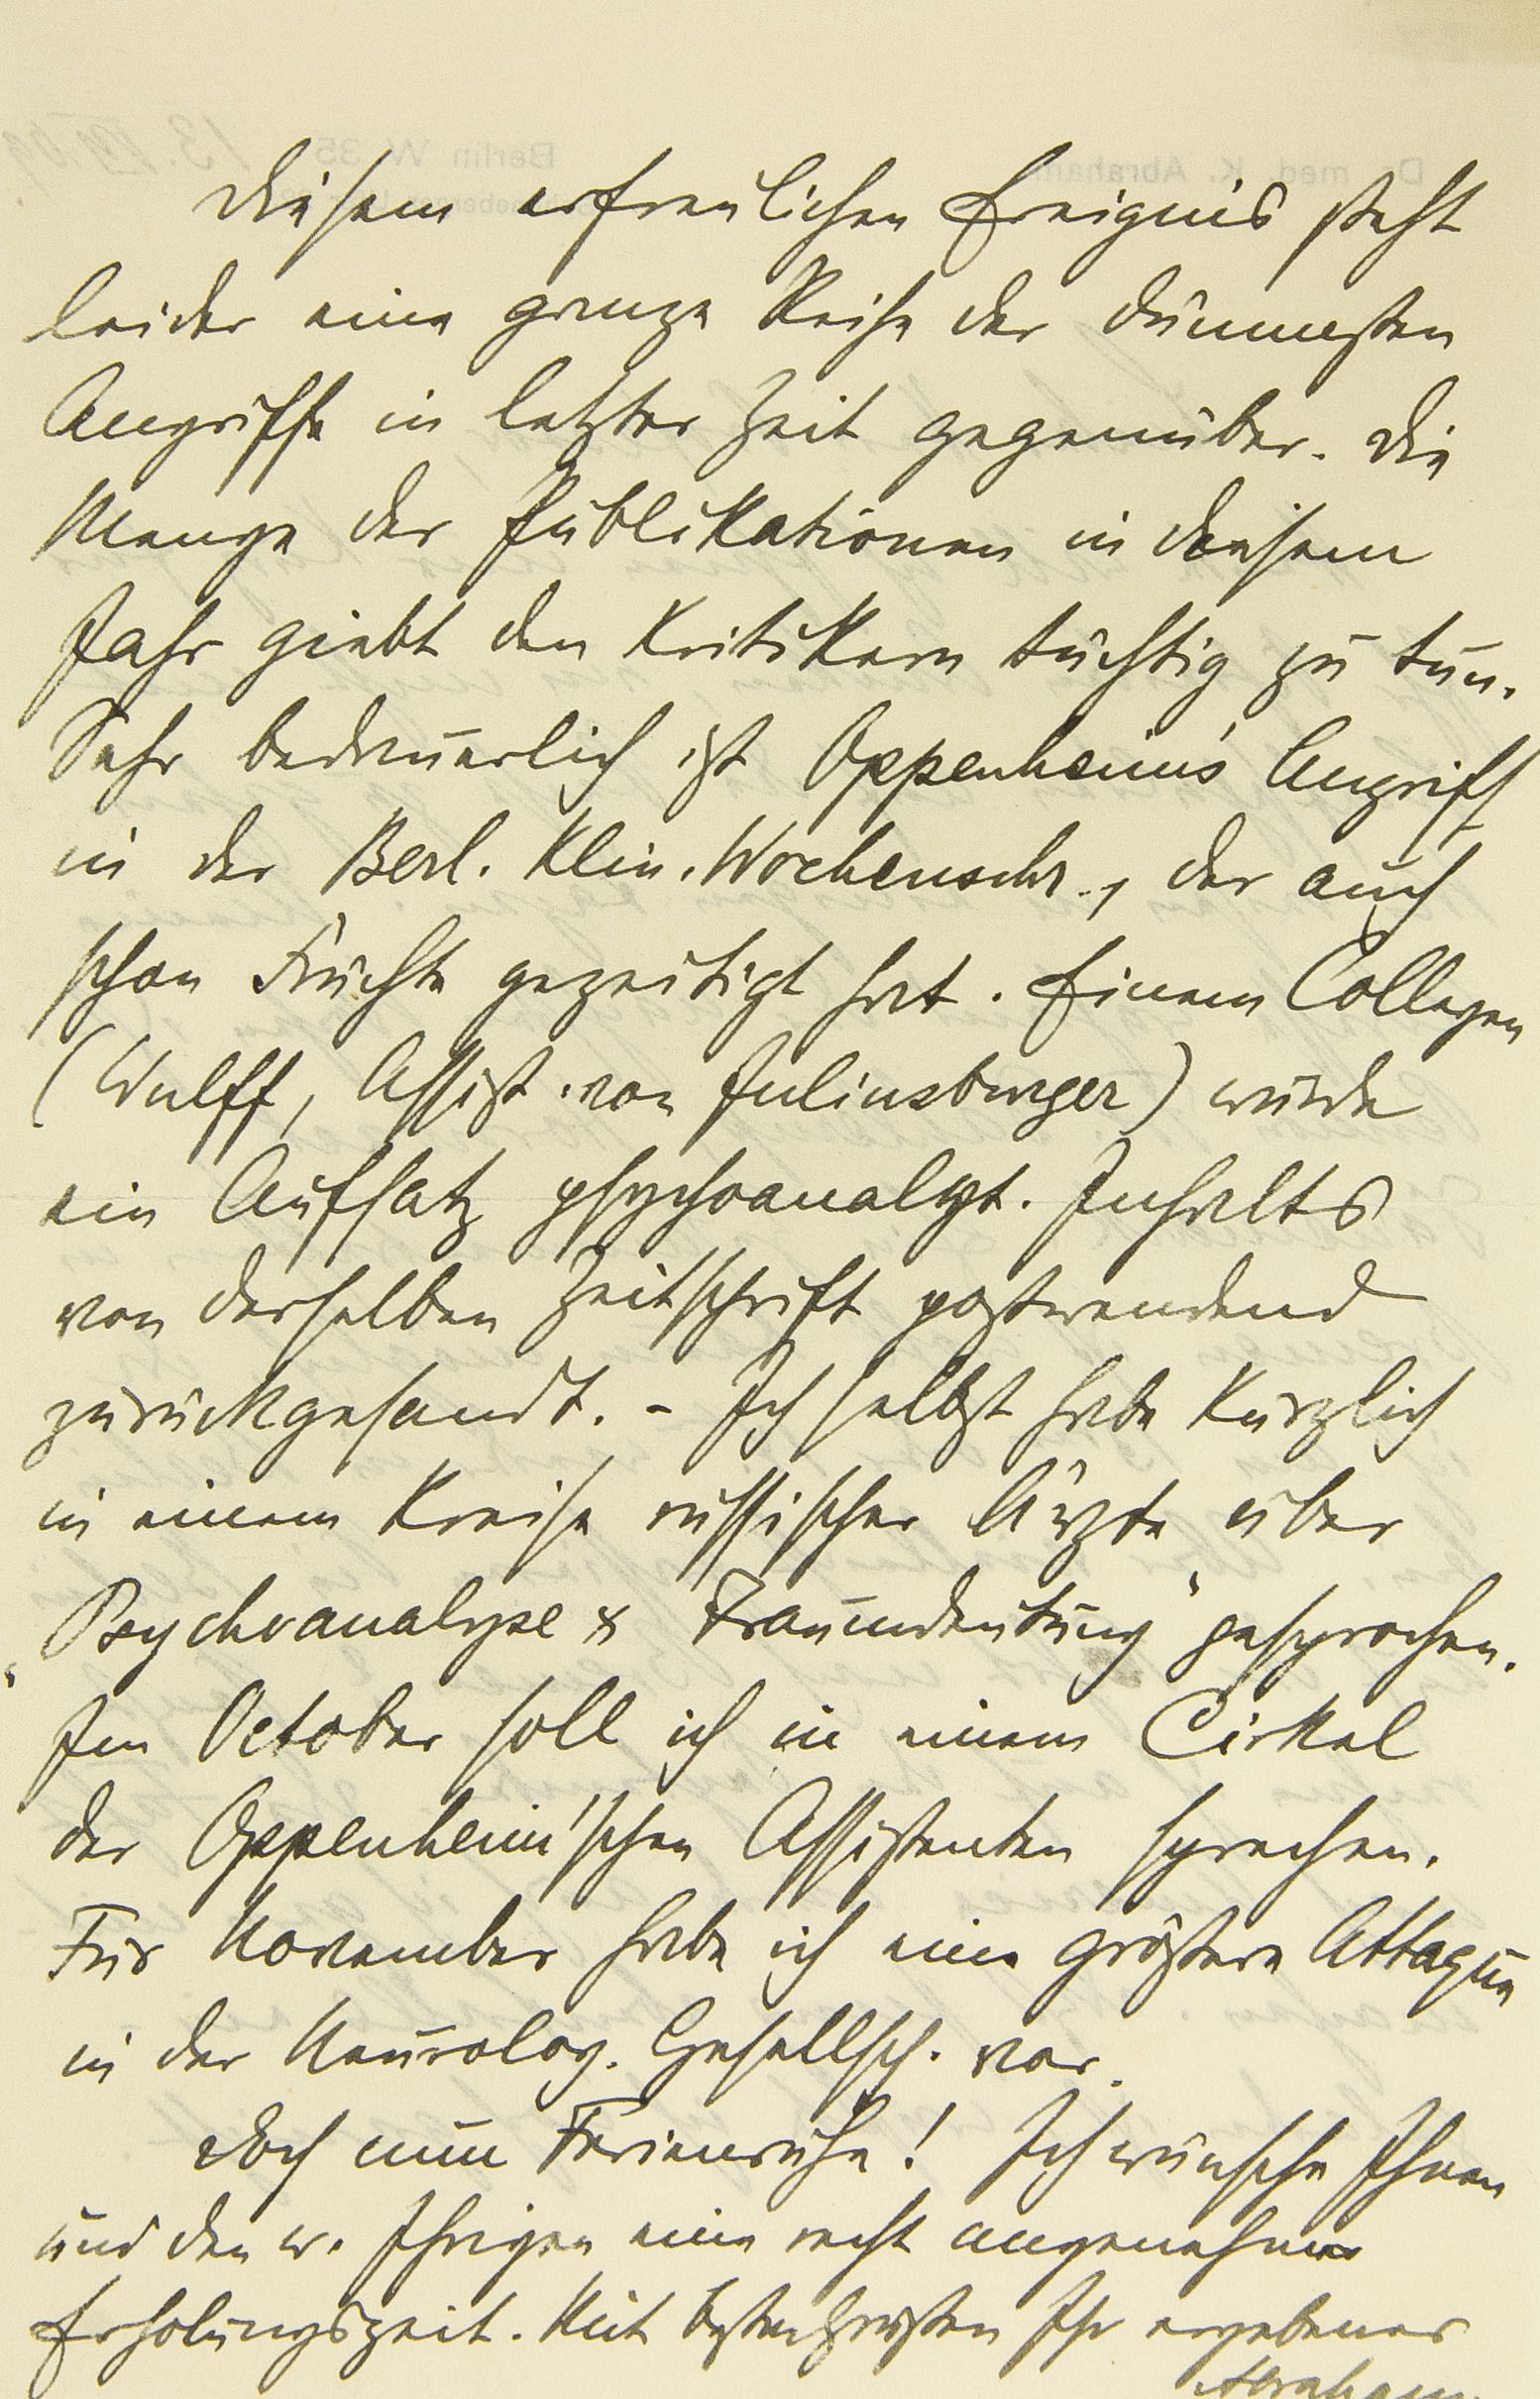 Diesem erfreulichen Ereignis steht
leider eine ganze Reihe der dümmsten
Angriffe in letzter Zeit gegenüber. Die
Menge der Publikationen in diesem
Jahr giebt den Kritikern tüchtig zu tun.
Sehr bedauerlich ist Oppenheim's Angriff
in der Berl. Klin. Wochenschr., der auch
schon Früchte gezeitigt hat. Einem Collegen
(Wulff, Assist. von Juliusburger) wurde
ein Aufsatz psychoanalyt. Inhalts
von derselben Zeitschrift postwendend
zurückgesandt. – Ich selbst habe kürzlich
in einem Kreise russischer Ärzte über
„Psychoanalyse & Traumdeutung" gesprochen.
Im October soll ich in einem Cirkel
der Oppenheim'schen Assistenten sprechen.
Für November habe ich eine größere Attaque
in der Neurolog. Gesellsch. vor.
Doch nun Ferienruhe! Ich wünsche Ihnen
und den w. Ihrigen eine recht angenehme
Erholungszeit. Mit besten Grüßen Ihr ergebener
Abraham.